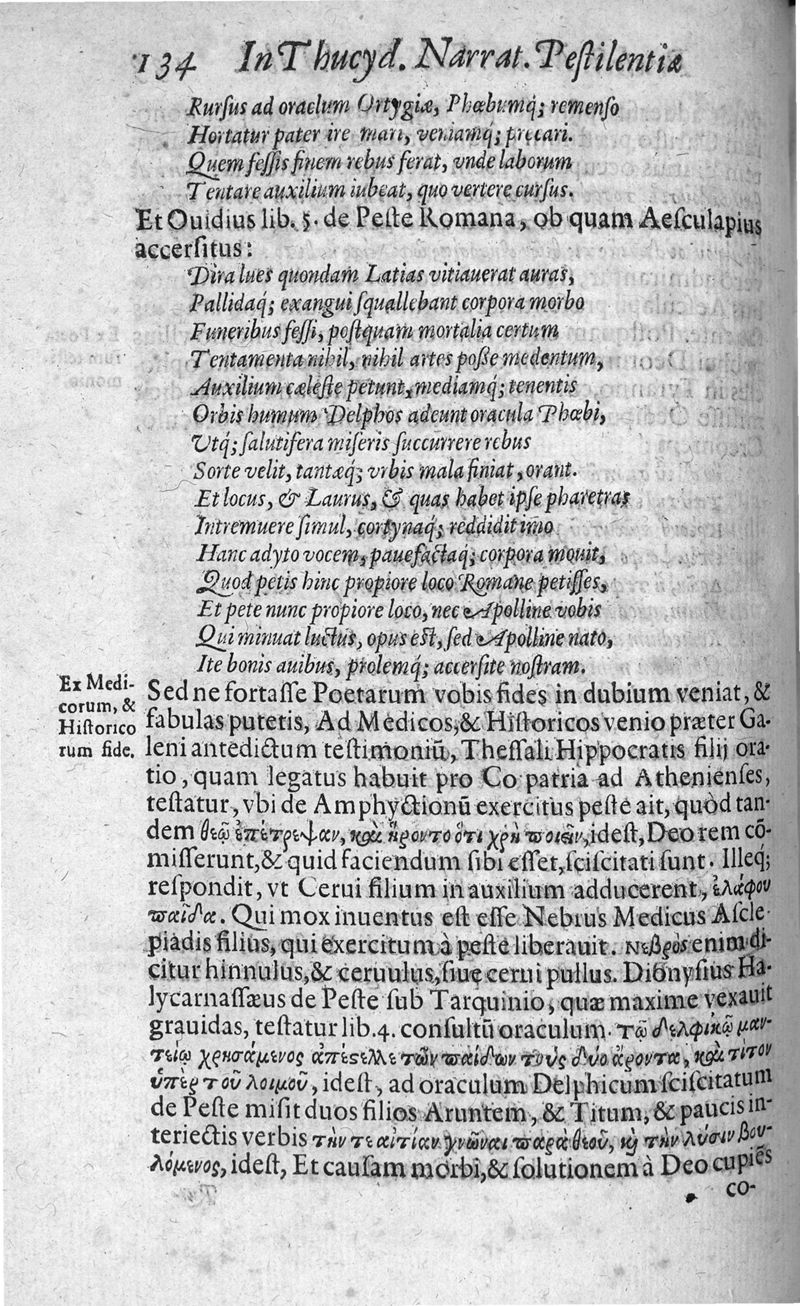 134 In Thucyd. Narrat. Pestilentiæ
Rursus ad oraclum Ortygiæ, Phœbumq́; remenso
Hortatur pater ire mari, veniamq́; precari.
Quem fessis finem rebus ferat, vnde laborum
Tentare auxilium iubeat, quo vertere cursus.
Et Ouidius lib. 5. de Peste Romana, ob quam Aesculapius
accersitus:
Dira lues quondam Latias vitiauerat auras,
Pallidaq́; exangui squallebant corpora morbo
Funeribus fessi, postquam mortalia certum
Tentamenta nihil, nihil artes posse medentum,
Auxilium cæleste petunt, mediamq́; tenentis
Orbis humum Delphos adeunt oracula Phœbi,
Vtq́; salutifera miseris succurrere rebus
Sorte velit, tantæq́; vrbis mala finiat, orant.
Et locus, & Laurus, & quas habet ipse pharetras
Intremuere simul, cortynaq́; reddidit imo
Hanc adyto vocem, pauefactaq́; corpora mouit,
Quod petis hinc propiore loco Romane petisses,
Et pete nunc propiore loco, nec Apolline vobis
Qui minuat luctus, opus est, sed Apolline nato,
Ite bonis auibus, prolemq́; accersite nostram.
Ex Medi-
corum, &
Historico
rum fide.
Sed ne fortasse Poetarum vobis fides in dubium veniat, &
fabulas putetis, Ad Medicos, & Historicos venio præter Ga-
leni antedictum testimoniũ, Thessali Hippocratis filij ora-
tio, quam legatus habuit pro Co patria ad Athenienses,
testatur, vbi de Amphyctionũ exercitus peste ait, quòd tan-
dem θεῷ ἐπέτρεψαν, καὶ ἤροντο ὅτι χρὴ ποιεῖν, idest, Deo rem cõ-
misserunt, & quid faciendum sibi esset, sciscitati sunt. Illeq́;
respondit, vt Cerui filium in auxilium adducerent, ἐλάφου
παῖδα. Qui mox inuentus est esse Nebrus Medicus Ascle-
piadis filius, qui exercitum à peste liberauit. Νεβρὸς enim di-
citur hinnulus, & ceruulus, siue cerui pullus. Dionysius Ha-
lycarnassæus de Peste sub Tarquinio, quæ maxime vexauit
grauidas, testatur lib. 4. consultũ oraculum. τῷ δελφικῷ μαν-
τείῳ χρησάμενος ἀπέστελλε τῶν παίδων τοὺς δύο ἄροντα, καὶ τίτον
ὑπὲρ τοῦ λοιμοῦ, idest, ad oraculum Delphicum sciscitatum
de Peste misit duos filios Aruntem, & Titum, & paucis in-
teriectis verbis τὴν τε αἰτίαν γνῶναι παρὰ θεοῦ, καὶ τὴν λύσιν βου-
λόμενος, idest, Et causam morbi, & solutionem à Deo cupiẽs
co-